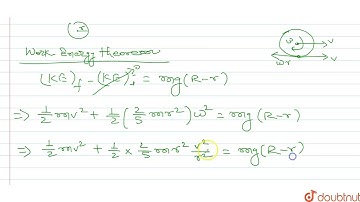 (x)
Work Energy theorem
ω
v
ωr
v
(KE)f - (KE)i 0 = mg(R-r)
⇒ 1/2 mv² + 1/2 (2/5 mr²) ω² = mg(R-r)
⇒ 1/2 mv² + 1/2 × 2/5 mr² v²/r² = mg(R-r)
doubtnut